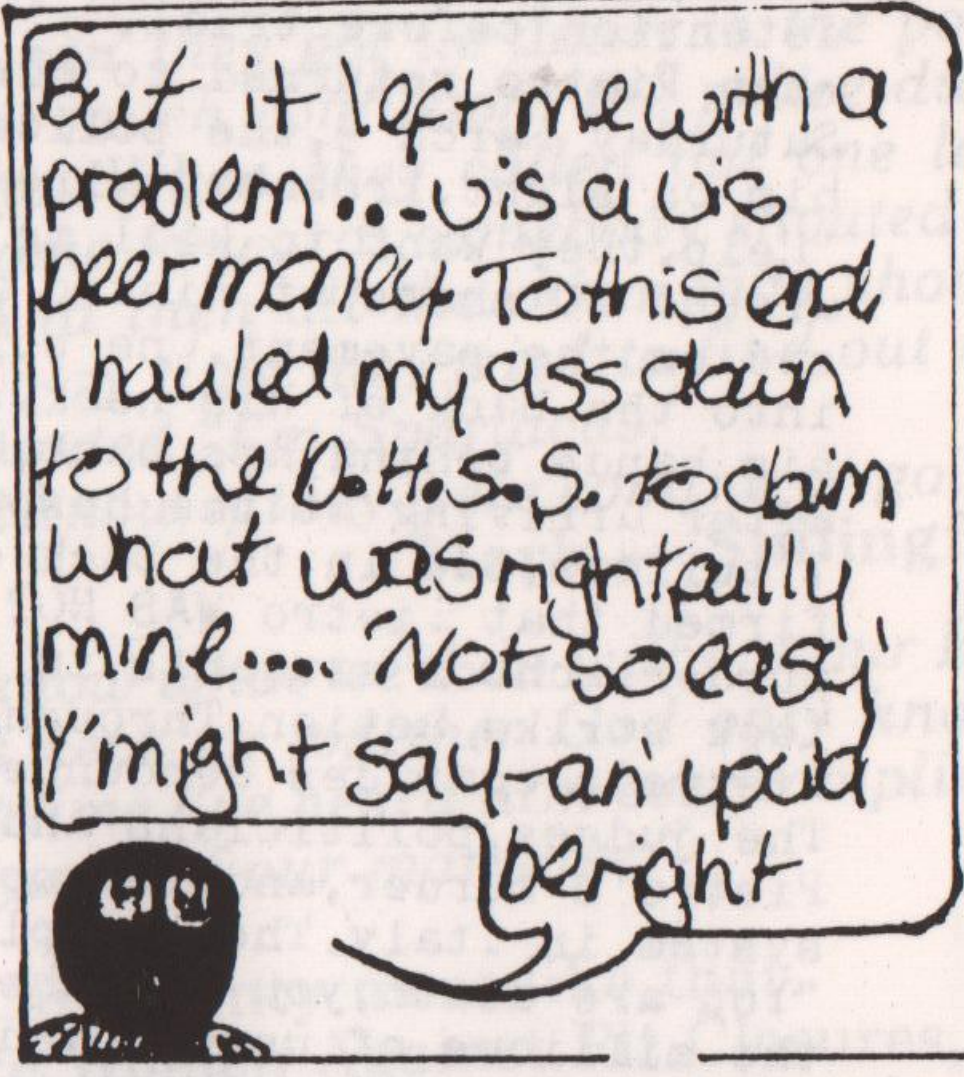 But it left me with a
problem...vis a vis
beer money. To this end
I hauled my ass down
to the D.H.S.S. to claim
what was rightfully
mine.... 'Not so easy'
Y'might say-an' you'd
be right